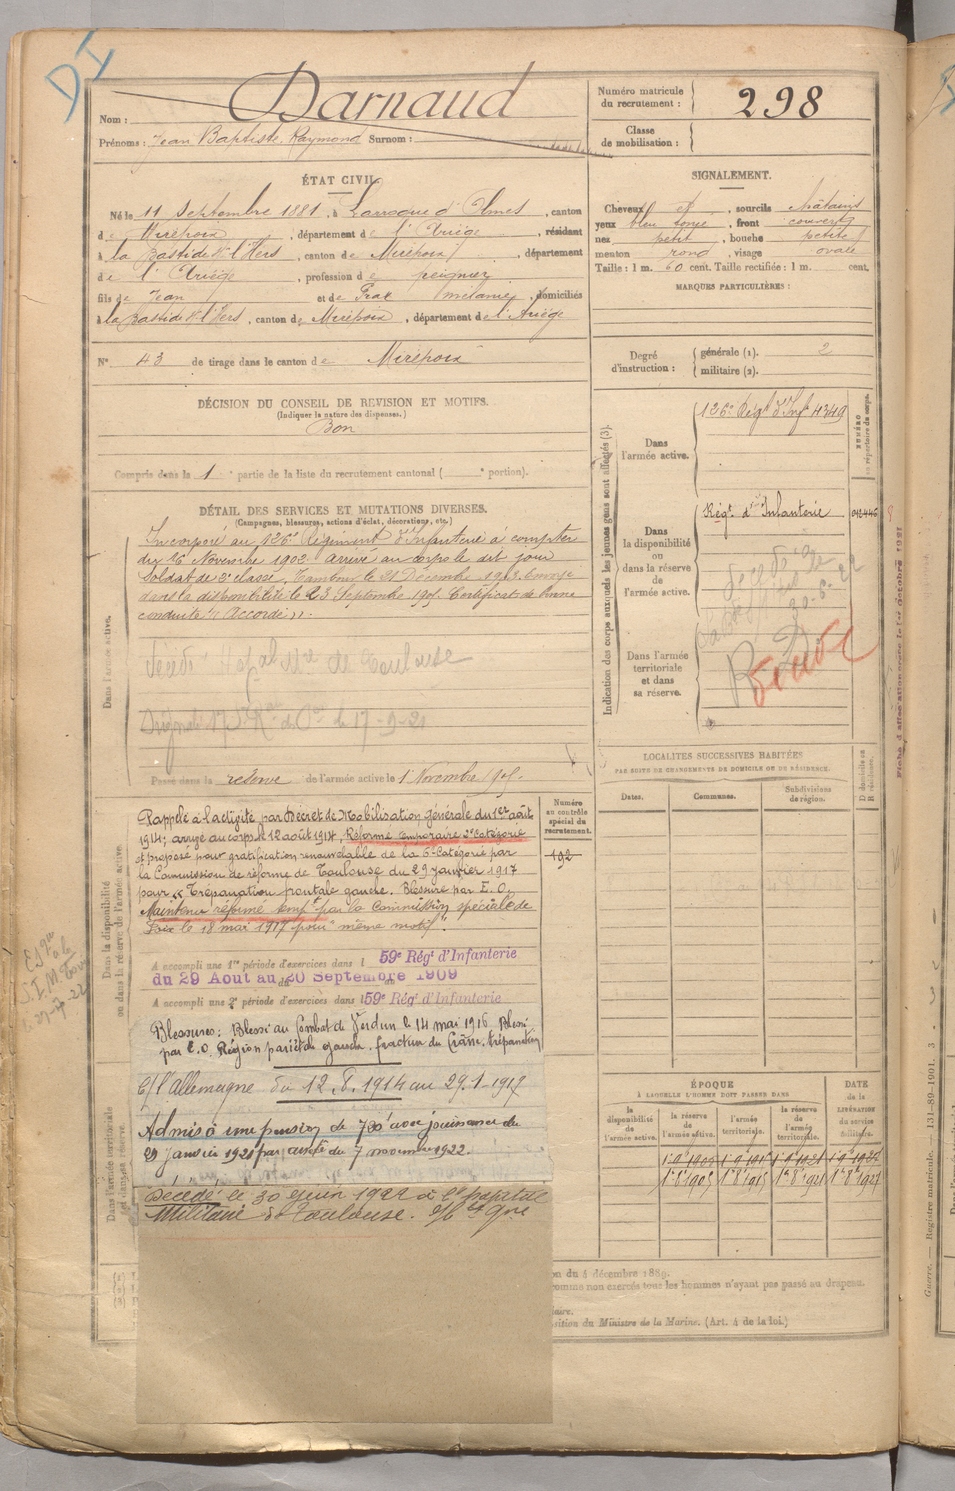 DI
Darnaud
Nom :
Prénoms : Jean Baptiste Raymond Surnom :
Numéro matricule
du recrutement :
298
Classe
de mobilisation :
ÉTAT CIVIL.
Né le 11 Septembre 1881, à Larroque d'Olmes, canton
de Mirepoix, département de l'Ariège, résidant
à la Bastide s/r l'Hers, canton de Mirepoix, département
de l'Ariège, profession de peignier
fils de Jean et de Prax Mélanie, domiciliés
à la Bastide s/r l'Hers, canton de Mirepoix, département de l'Ariège
N° 43 de tirage dans le canton de Mirepoix
SIGNALEMENT.
Cheveux et, sourcils châtains
yeux bleu foncé, front couvert
nez petit, bouche petite
menton rond, visage ovale
Taille : 1 m. 60 cent. Taille rectifiée : 1 m. cent.
MARQUES PARTICULIÈRES :
Degré
d'instruction :
générale (1). 2
militaire (2).
DÉCISION DU CONSEIL DE REVISION ET MOTIFS.
(Indiquer la nature des dispenses.)
Bon
Compris dans la 1 partie de la liste du recrutement cantonal ( portion).
DÉTAIL DES SERVICES ET MUTATIONS DIVERSES.
(Campagnes, blessures, actions d'éclat, décorations, etc.)
Dans l'armée active.
Incorporé au 126e Régiment d'Infanterie à compter
du 16 Novembre 1902 arrivé au corps le dit jour
Soldat de 2e classe. Tambour le 21 Décembre 1903. Envoyé
dans la disponibilité le 23 Septembre 1905. Certificat de bonne
conduite « Accordé ».
Décédé Hopal Mre de Toulouse
17-9-21
Passé dans la réserve de l'armée active le 1 Novembre 1905.
Indication des corps auxquels les jeunes gens sont affectés (3).
NUMÉRO
au répertoire du corps.
Dans
l'armée active.
126e Régt d'Infie 4349
Dans
la disponibilité
ou
dans la réserve
de l'armée active.
Régt d'Infanterie
30-6-22
Dans l'armée
territoriale
et dans
sa réserve.
LOCALITÉS SUCCESSIVES HABITÉES
PAR SUITE DE CHANGEMENTS DE DOMICILE OU DE RÉSIDENCE.
Dates.
Communes.
Subdivisions
de région.
D domicile ou
R résidence.
Dans la disponibilité
ou dans la réserve de l'armée active.
Numéro
au contrôle
spécial du
recrutement.
192
Rappelé à l'activité par Décret de Mobilisation générale du 1er août
1914; arrivé au corps le 12 août 1914, Réformé temporaire 2e Catégorie
et proposé pour gratification renouvelable de la 6e Catégorie par
la Commission de réforme de Toulouse du 29 janvier 1917
pour « Trépanation frontale gauche. Blessure par E. O.
Maintenu réformé tempre par la Commission spéciale de
Foix le 18 mai 1917 pour "même motif".
A accompli une 1re période d'exercices dans l 59e Régt d'Infanterie
du 29 Aout au 20 Septembre 1909
A accompli une 2e période d'exercices dans l 59e Régt d'Infanterie
Blessures : Blessé au Combat de Verdun le 14 mai 1916. Blessé
par E.O. Région pariétale gauche. fracture du Crâne. trépanation
C/ l'Allemagne du 12.8.1914 au 29.1.1917
Admis à une pension de 780 avec jouissance du
29 janvier 1921 par arrêté du 7 novembre 1922.
Décédé le 30 juin 1922 à l'hopital
Militaire de Toulouse.
Dans l'armée territoriale
et dans sa réserve.
ÉPOQUE
À LAQUELLE L'HOMME DOIT PASSER DANS
DATE
de la
LIBÉRATION
du service
militaire.
la
disponibilité
de
l'armée active.
la réserve
de
l'armée active.
l'armée
territoriale.
la réserve
de
l'armée
territoriale.
on du 4 décembre 1889.
comme non exercés tous les hommes n'ayant pas passé au drapeau.
sition du Ministre de la Marine. (Art. 4 de la loi.)
Guerre. — Registre matricule. — 131-89-1901.